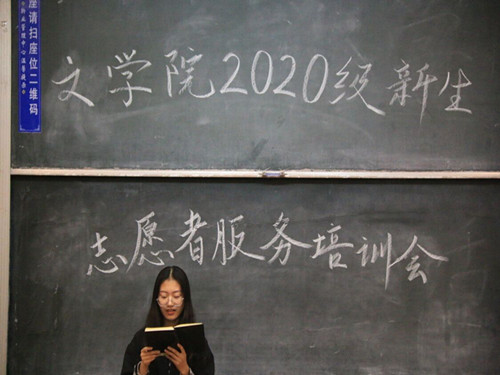 文学院2020级新生
志愿者服务培训会
座请扫座位二维码